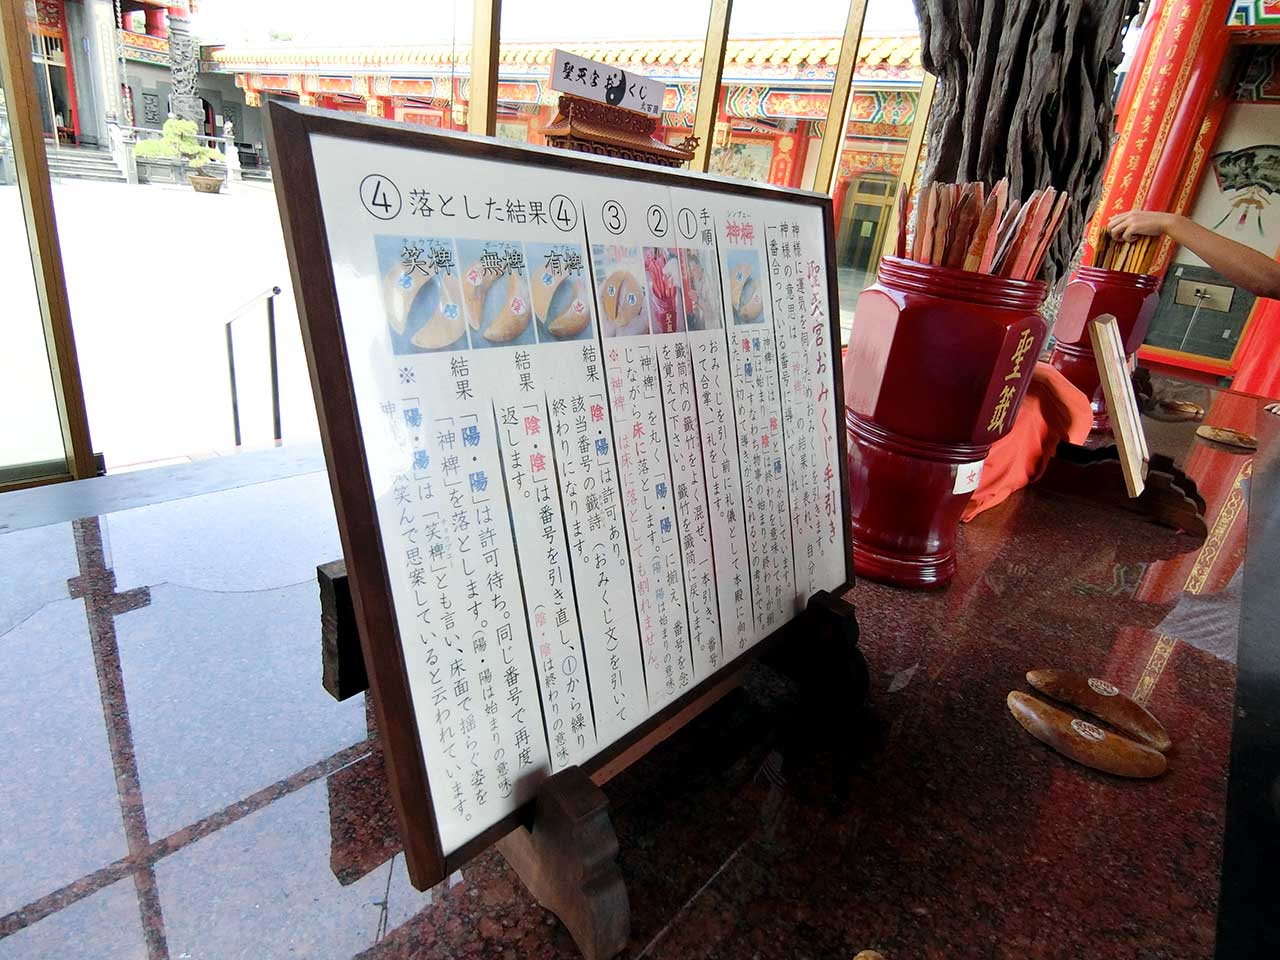 聖天宮おみくじ
弐百圓
聖天宮おみくじ手引き
神様に運気を伺うためおみくじを引きます。
神様の意思は、「神椑」の結果に表れ、自分に
一番合っている番号に導いてくれます。
シンプエー
神椑
「神椑」には「陰」と「陽」が記しています。
「陽」は始まり「陰」は終わりを意味しており、
「陰・陽」、すなわち物事の始まりと終わりが揃
えた上、初めて導きが示されるとの考えです。
手順
①
おみくじを引く前に礼儀として本殿に向か
って合掌、一礼をします。
②
籤筒内の籤竹をよく混ぜ、一本引き、番号
を覚えて下さい。籤竹を籤筒に戻します。
③
「神椑」を丸く、「陽・陽」に揃え、番号を念
じながら床に落とします。(陽・陽は始まりの意味)
※「神椑」は床に落としても割れません。
④落とした結果④
ウプエー
有椑
結果
「陰・陽」は許可あり。
該当番号の籤詩(おみくじ文)を引いて
終わりになります。
ボープエー
無椑
結果
「陰・陰」は番号を引き直し、①から繰り
返します。
(陰・陰は終わりの意味)
チョウプエー
笑椑
結果
「陽・陽」は許可待ち。同じ番号で再度
「神椑」を落とします。(陽・陽は始まりの意味)
※「陽・陽」は「笑椑」とも言い、床面で揺らぐ姿を
微笑んで思案していると云われています。
聖籤
女